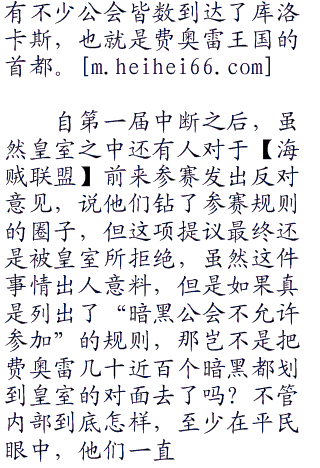 有不少公会皆数到达了库洛
卡斯，也就是费奥雷王国的
首都。[m.heihei66.com]
自第一届中断之后，虽
然皇室之中还有人对于【海
贼联盟】前来参赛发出反对
意见，说他们钻了参赛规则
的圈子，但这项提议最终还
是被皇室所拒绝，虽然这件
事情出人意料，但是如果真
是列出了“暗黑公会不允许
参加”的规则，那岂不是把
费奥雷几十近百个暗黑都划
到皇室的对面去了吗？不管
内部到底怎样，至少在平民
眼中，他们一直